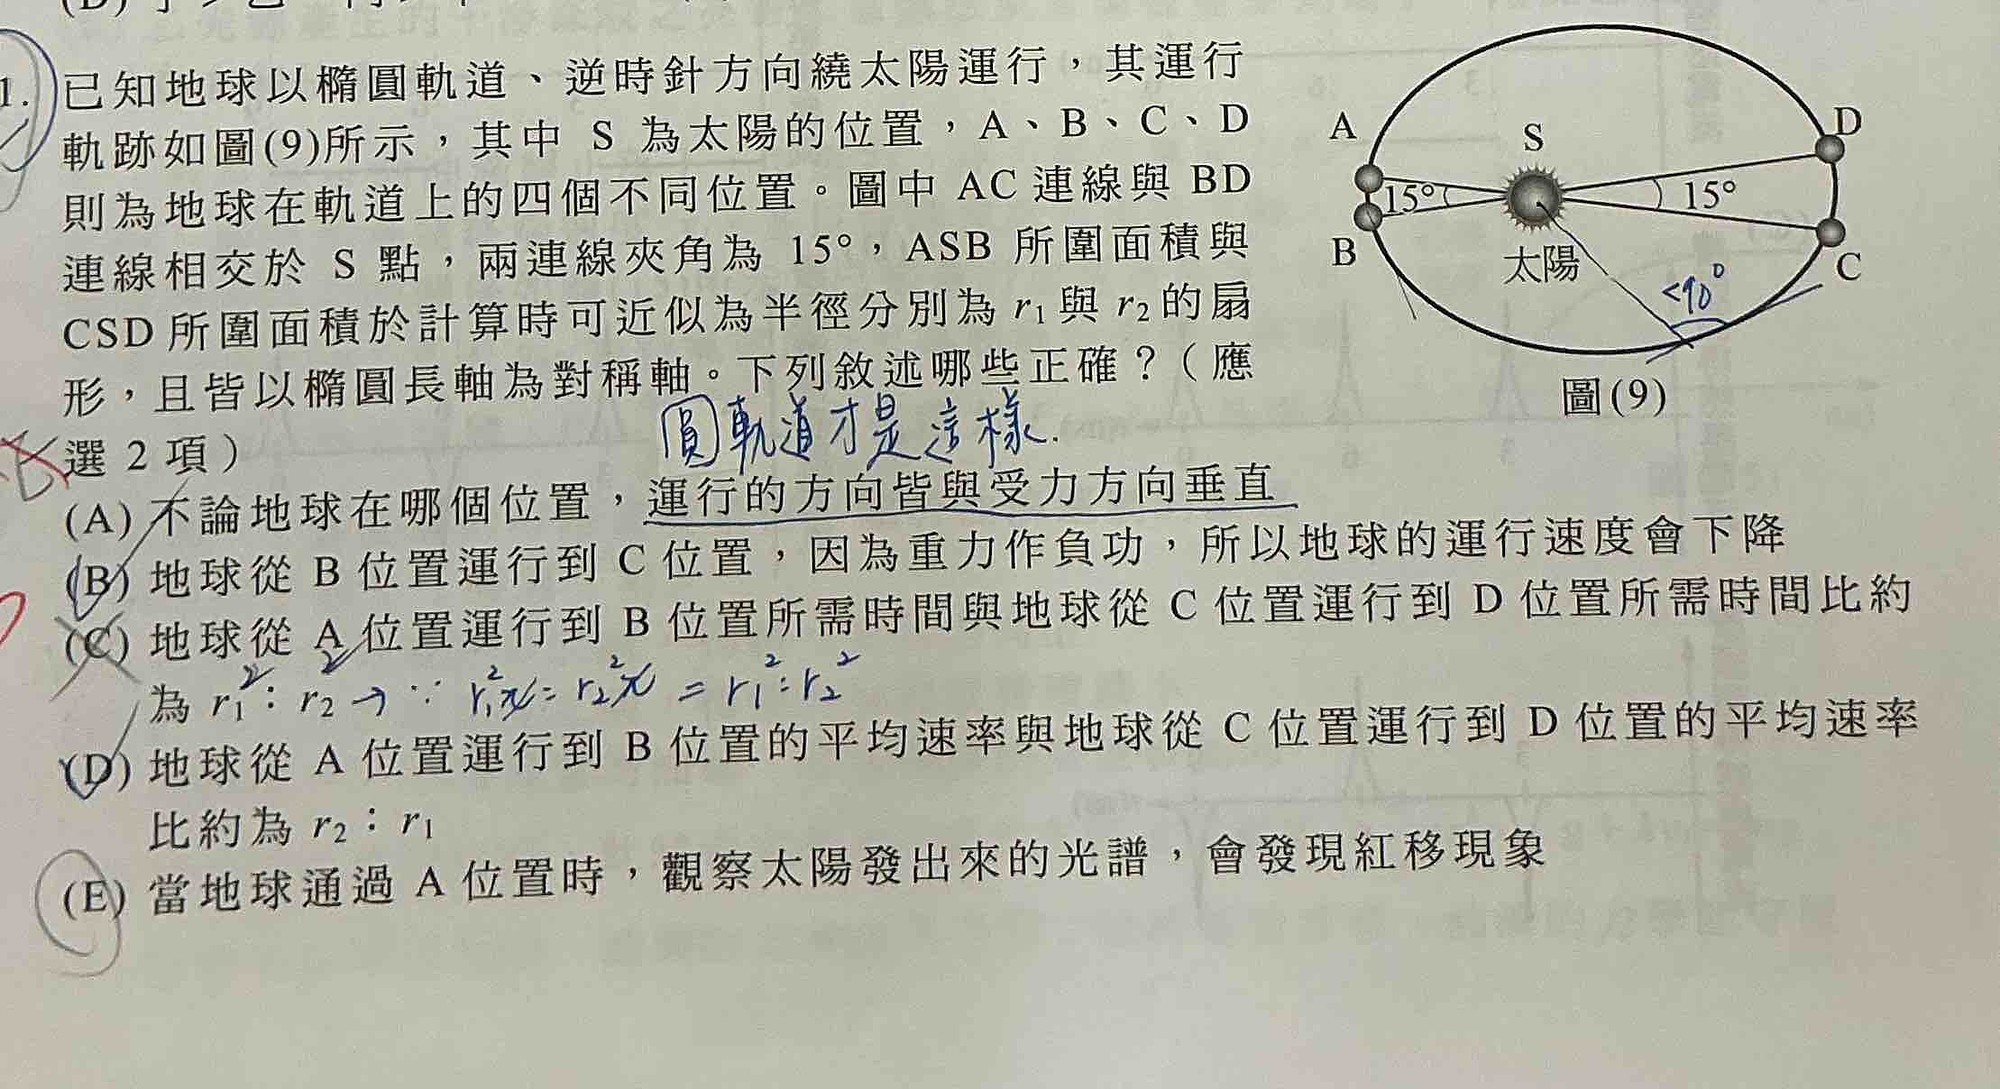 1. 已知地球以橢圓軌道、逆時針方向繞太陽運行，其運行
軌跡如圖(9)所示，其中 S 為太陽的位置，A、B、C、D
則為地球在軌道上的四個不同位置。圖中 AC 連線與 BD
連線相交於 S 點，兩連線夾角為 15°，ASB 所圍面積與
CSD 所圍面積於計算時可近似為半徑分別為 r₁ 與 r₂ 的扇
形，且皆以橢圓長軸為對稱軸。下列敘述哪些正確？（應
選 2 項）
圓軌道才是這樣.
(A) 不論地球在哪個位置，運行的方向皆與受力方向垂直
(B) 地球從 B 位置運行到 C 位置，因為重力作負功，所以地球的運行速度會下降
(C) 地球從 A 位置運行到 B 位置所需時間與地球從 C 位置運行到 D 位置所需時間比約
為 r₁²：r₂² → ∵ r₁²x = r₂²x = r₁²：r₂²
(D) 地球從 A 位置運行到 B 位置的平均速率與地球從 C 位置運行到 D 位置的平均速率
比約為 r₂：r₁
(E) 當地球通過 A 位置時，觀察太陽發出來的光譜，會發現紅移現象
A
S
D
15°
15°
B
太陽
C
<90°
圖(9)